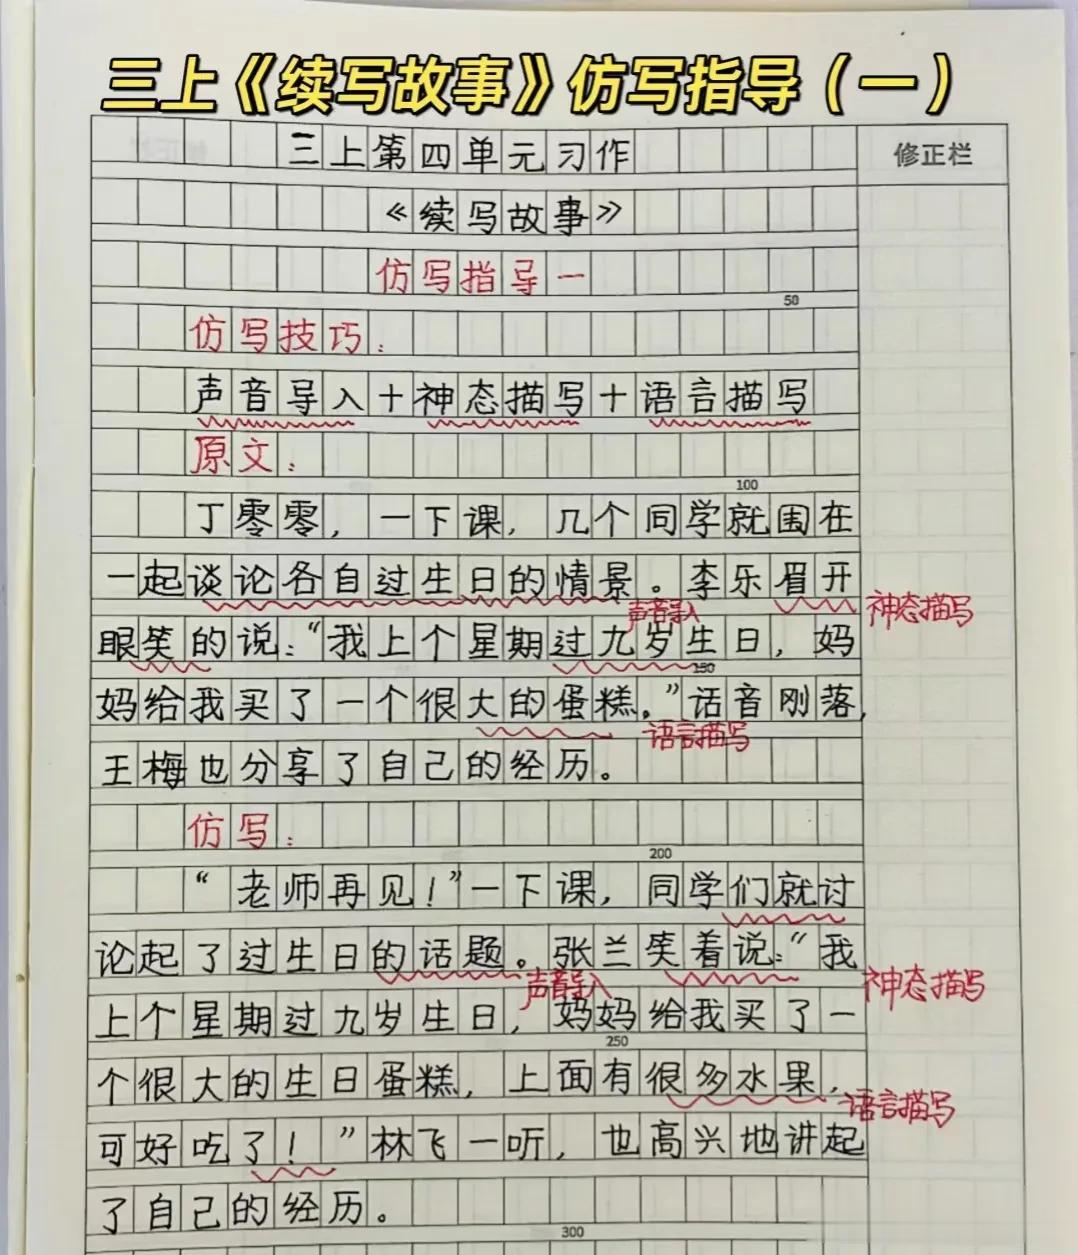 三上《续写故事》仿写指导（一）
三上第四单元习作
修正栏
《续写故事》
仿写指导一
50
仿写技巧：
声音导入+神态描写+语言描写
原文：
100
丁零零，一下课，几个同学就围在
一起谈论各自过生日的情景。李乐眉开
声音导入
神态描写
眼笑的说：“我上个星期过九岁生日，妈
150
妈给我买了一个很大的蛋糕。”话音刚落，
语言描写
王梅也分享了自己的经历。
仿写：
200
“老师再见！”一下课，同学们就讨
论起了过生日的话题。张兰笑着说：“我
声音导入
神态描写
上个星期过九岁生日，妈妈给我买了一
250
个很大的生日蛋糕，上面有很多水果，
语言描写
可好吃了！”林飞一听，也高兴地讲起
了自己的经历。
300